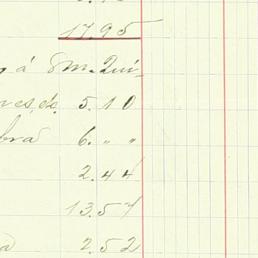 17.95
á Sm. Qui
5.10
bra 6. „ „
2.44
13.57
a 2.52